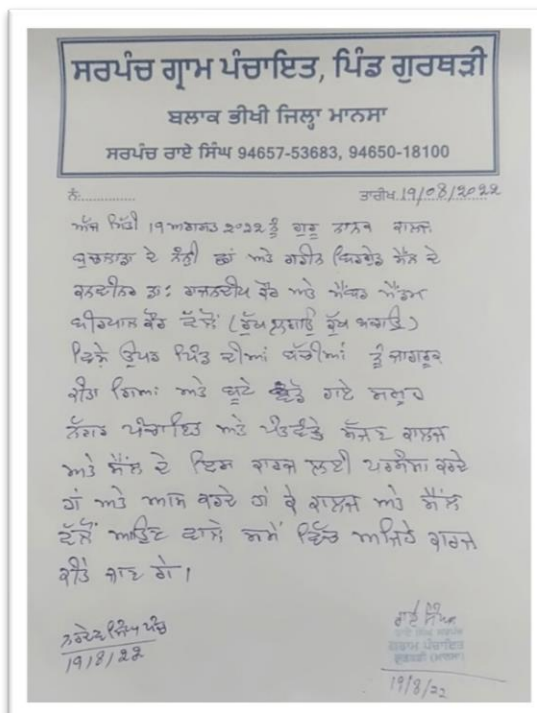 ਸਰਪੰਚ ਗ੍ਰਾਮ ਪੰਚਾਇਤ, ਪਿੰਡ ਗੁਰਥੜੀ
ਬਲਾਕ ਭੀਖੀ ਜਿਲ੍ਹਾ ਮਾਨਸਾ
ਸਰਪੰਚ ਰਾਏ ਸਿੰਘ 94657-53683, 94650-18100
ਨੰ:............. ਤਾਰੀਖ 19/08/2022
ਅੱਜ ਮਿਤੀ 19 ਅਗਸਤ 2022 ਨੂੰ ਗੁਰੂ ਨਾਨਕ ਕਾਲਜ
ਬੁਢਲਾਡਾ ਦੇ ਨੰਨ੍ਹੀ ਛਾਂ ਅਤੇ ਗਰੀਨ ਸੈੱਲ ਦੇ
ਕਨਵੀਨਰ ਡਾ: ਗਜਨਦੀਪ ਕੌਰ ਅਤੇ ਮੈਂਬਰ ਮੈਡਮ
ਵੀਰਪਾਲ ਕੌਰ ਵੱਲੋਂ (ਰੁੱਖ ਲਗਾਓ ਰੁੱਖ ਬਚਾਓ)
ਵਿਸ਼ੇ ਉਪਰ ਪਿੰਡ ਦੀਆਂ ਬੱਚੀਆਂ ਨੂੰ ਜਾਗਰੂਕ
ਕੀਤਾ ਗਿਆ ਅਤੇ ਬੂਟੇ ਵੰਡੇ ਗਏ ਸਮੂਹ
ਨੱਗਰ ਪੰਚਾਇਤ ਅਤੇ ਪਤਵੰਤੇ ਸੱਜਣ ਕਾਲਜ
ਅਤੇ ਸੈੱਲ ਦੇ ਇਸ ਕਾਰਜ ਲਈ ਪਰਸੰਸਾ ਕਰਦੇ
ਹਾਂ ਅਤੇ ਆਸ ਕਰਦੇ ਹਾਂ ਕੇ ਕਾਲਜ ਅਤੇ ਸੈੱਲ
ਵੱਲੋਂ ਆਉਣ ਵਾਲੇ ਸਮੇਂ ਵਿੱਚ ਅਜਿਹੇ ਕਾਰਜ
ਕੀਤੇ ਜਾਣ ਗੇ।
ਸਿੰਘ ਪੰਚ
19/8/22
ਰਾਏ ਸਿੰਘ
ਰਾਏ ਸਿੰਘ ਸਰਪੰਚ
ਗਰਾਮ ਪੰਚਾਇਤ
ਗੁਰਥੜੀ (ਮਾਨਸਾ)
19/8/22